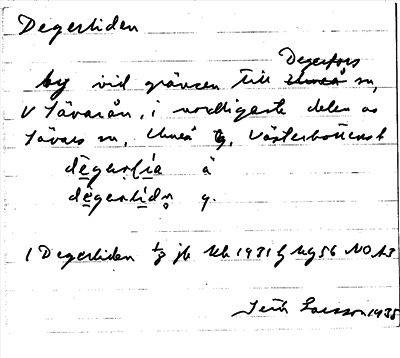 Degerliden
Degerfors
by vid gränsen till Umeå sn,
V Tävarån, i nordligaste delen av
Tävars sn, Umeå tg, Västerbottens l
dēgərlía å
dēgərlídn̥ y.
1 Degerliden 1931 56 NO A3
Larsson 1935